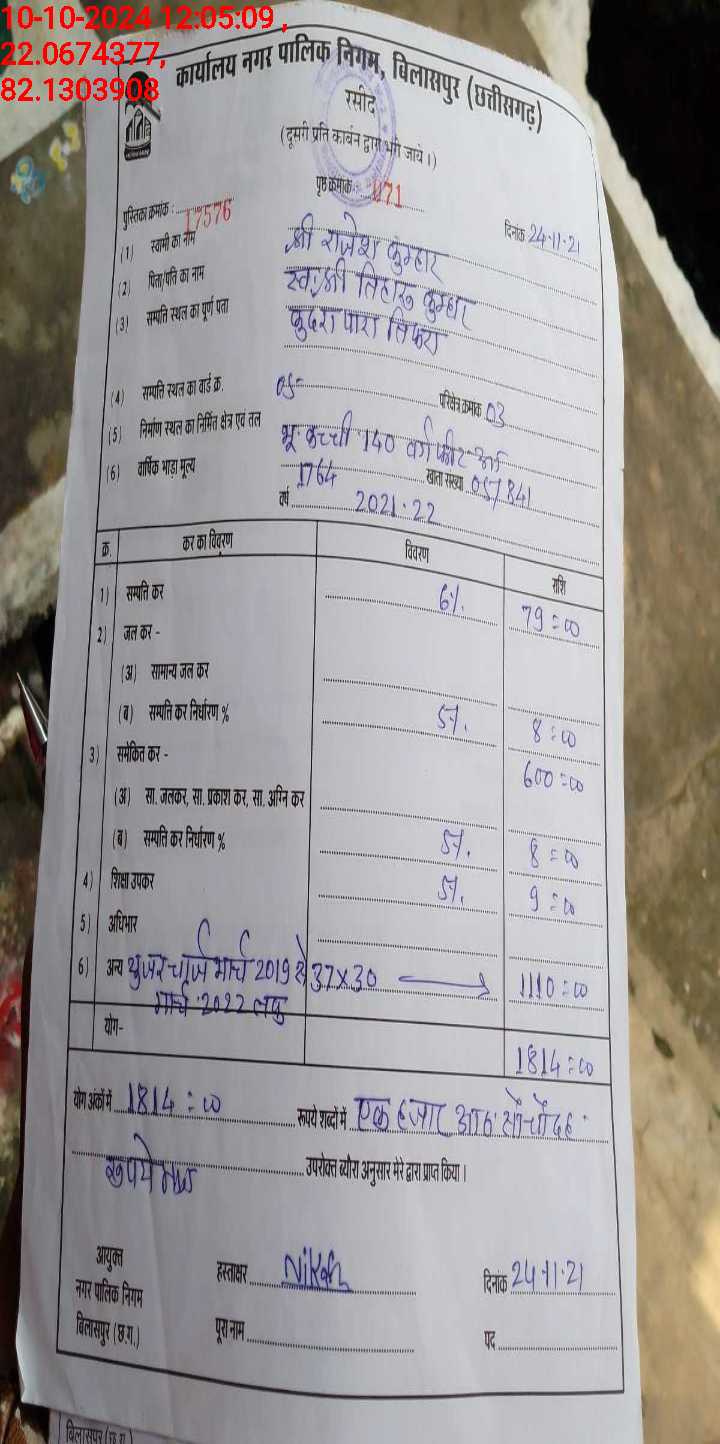 10-10-2024 12:05:09 ,
22.0674377,
82.1303908
कार्यालय नगर पालिक निगम, बिलासपुर (छत्तीसगढ़)
रसीद
(दूसरी प्रति कार्बन द्वारा भरी जाये।)
पुस्तिका क्रमांक : 17576 पृष्ठ क्रमांक : 071 दिनांक 24-11-21
(1) स्वामी का नाम श्री राजेश कुम्हार
(2) पिता/पति का नाम स्व. श्री तिहारू कुम्हार
(3) सम्पत्ति स्थल का पूर्ण पता कुदरा पारा तिफरा
(4) सम्पत्ति स्थल का वार्ड क्र. 05 परिक्षेत्र क्रमांक 03
(5) निर्माण स्थल का निर्मित क्षेत्र एवं तल भू. कच्ची 140 वर्ग फीट
(6) वार्षिक भाड़ा मूल्य 1764 खाता संख्या 057841
वर्ष 2021-22
क्र. कर का विवरण विवरण राशि
1) सम्पत्ति कर 6% 79=00
2) जल कर -
(अ) सामान्य जल कर
(ब) सम्पत्ति कर निर्धारण % 5% 8=00
3) समेकित कर - 600=00
(अ) सा. जलकर, सा. प्रकाश कर, सा. अग्नि कर
(ब) सम्पत्ति कर निर्धारण % 5% 8=00
4) शिक्षा उपकर 5% 9=00
5) अधिभार
6) अन्य यूजर चार्ज मार्च 2019 से 37x30 → 1110=00
मार्च 2022 तक
योग- 1814=00
योग अंकों में 1814=00 रूपये शब्दों में एक हजार आठ सौ चौदह
रूपये मात्र उपरोक्त ब्यौरा अनुसार मेरे द्वारा प्राप्त किया।
आयुक्त
नगर पालिक निगम हस्ताक्षर दिनांक 24-11-21
बिलासपुर (छ.ग.) पूरा नाम पद
बिलासपुर (छ.ग.)